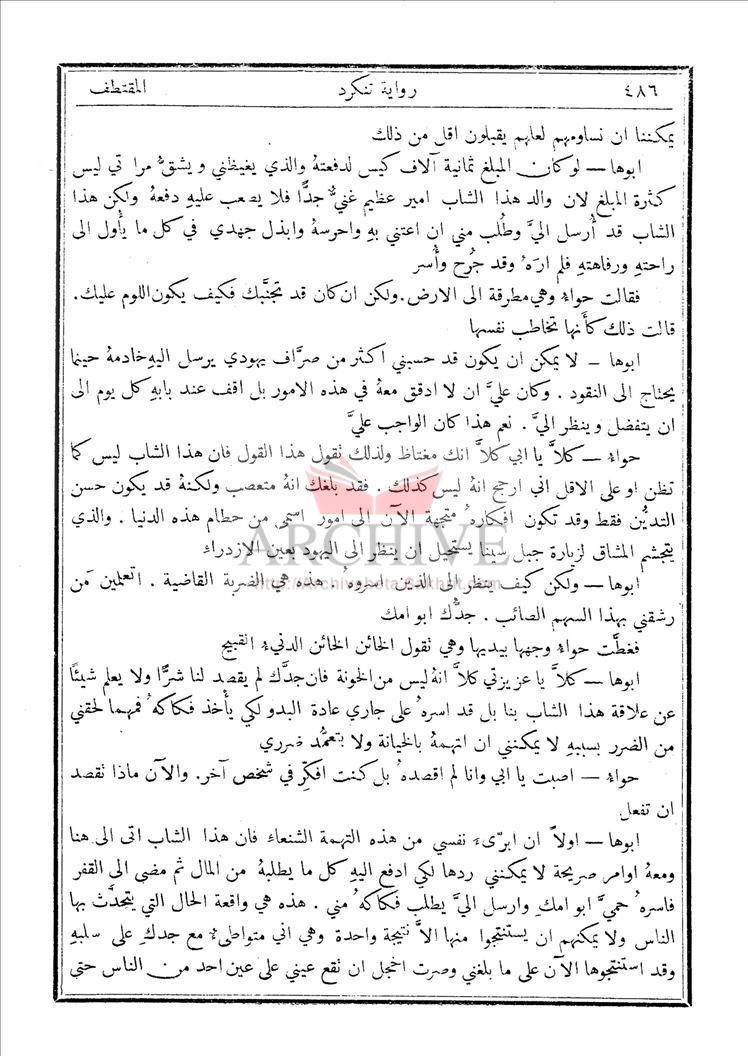 ٤٨٦ رواية تنكرد المقتطف
يمكننا ان نساومهم لعلهم يقبلون اقل من ذلك
ابوها — لو كان المبلغ ثمانية آلاف كيس لدفعتهُ والذي يغيظني ويشقُّ مرارتي ليس
كثرة المبلغ لان والد هذا الشاب امير عظيم غنيٌّ جدًّا فلا يصعب عليهِ دفعهُ ولكن هذا
الشاب قد أُرسل اليَّ وطُلب مني ان اعتني بهِ واحرسهُ وابذل جهدي في كل ما يأول الى
راحتهِ ورفاهتهِ فلم ارَهُ وقد جُرح وأُسر
فقالت حواءُ وهي مطرقة الى الارض. ولكن ان كان قد تجنَّبك فكيف يكون اللوم عليك.
قالت ذلك كأَنها تخاطب نفسها
ابوها — لا يمكن ان يكون قد حسبني اكثر من صرَّاف يهودي يرسل اليهِ خادمهُ حينما
يحتاج الى النقود . وكان عليَّ ان لا ادقق معهُ في هذه الامور بل اقف عند بابهِ كل يوم الى
ان يتفضل وينظر اليَّ . نعم هذا كان الواجب عليَّ
حواءُ — كلاَّ يا ابي كلاَّ انك مغتاظ ولذلك تقول هذا القول فان هذا الشاب ليس كما
تظن او على الاقل اني ارجح انهُ ليس كذلك . فقد بلغك انهُ متعصب ولكنهُ قد يكون حسن
التديُّن فقط وقد تكون افكارهُ متجهة الآن الى امور اسمى من حطام هذه الدنيا . والذي
يتجشم المشاق لزيارة جبل سينا يستحيل ان ينظر الى اليهود بعين الازدراء
ابوها — ولكن كيف ينظر الى الذين اسروهُ . هذه هي الضربة القاضية . اتعلمين مَن
رشقني بهذا السهم الصائب . جدُّك ابو امك
فغطَّت حواءُ وجهها بيديها وهي تقول الخائن الخائن الدنيءُ القبيح
ابوها — كلاَّ يا عزيزتي كلاَّ انهُ ليس من الخونة فان جدَّك لم يقصد لنا شرًّا ولا يعلم شيئًا
عن علاقة هذا الشاب بنا بل قد اسرهُ على جاري عادة البدو لكي يأْخذ فكاكهُ فمهما لحقني
من الضرر بسببهِ لا يمكنني ان اتهمهُ بالخيانة ولا بتعمُّد ضرري
حواءُ — اصبت يا ابي وانا لم اقصدهُ بل كنت افكّر في شخص آخر. والآن ماذا تقصد
ان تفعل
ابوها — اولاً ان ابرّئ نفسي من هذه التهمة الشنعاء فان هذا الشاب اتى الى هنا
ومعهُ اوامر صريحة لا يمكنني ردها لكي ادفع اليهِ كل ما يطلبهُ من المال ثم مضى الى القفر
فاسرهُ حميَّ ابو امكِ وارسل اليَّ يطلب فكاكهُ مني . هذه هي واقعة الحال التي يتحدَّث بها
الناس ولا يمكنهم ان يستنتجوا منها الاَّ نتيجة واحدة وهي اني متواطئٌ مع جدكِ على سلبهِ
وقد استنتجوها الآن على ما بلغني وصرت اخجل ان تقع عيني على عين احد من الناس حتى
ARCHIVE